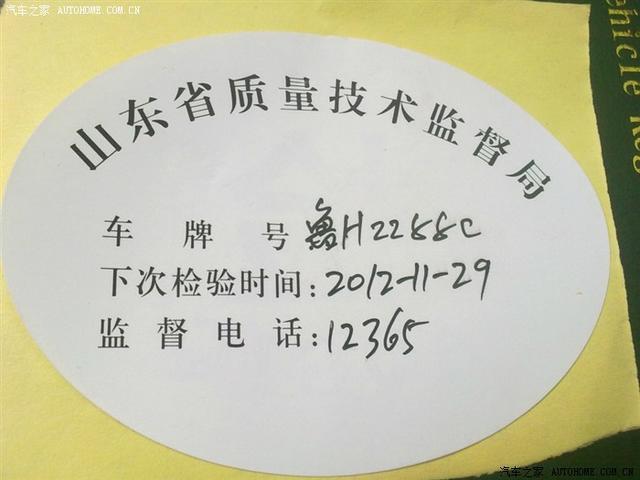 汽车之家 AUTOHOME.COM.CN
山东省质量技术监督局
车牌号 鲁H2288C
下次检验时间:2012-11-29
监督电话:12365
ehicle Reg
汽车之家 AUTOHOME.COM.CN